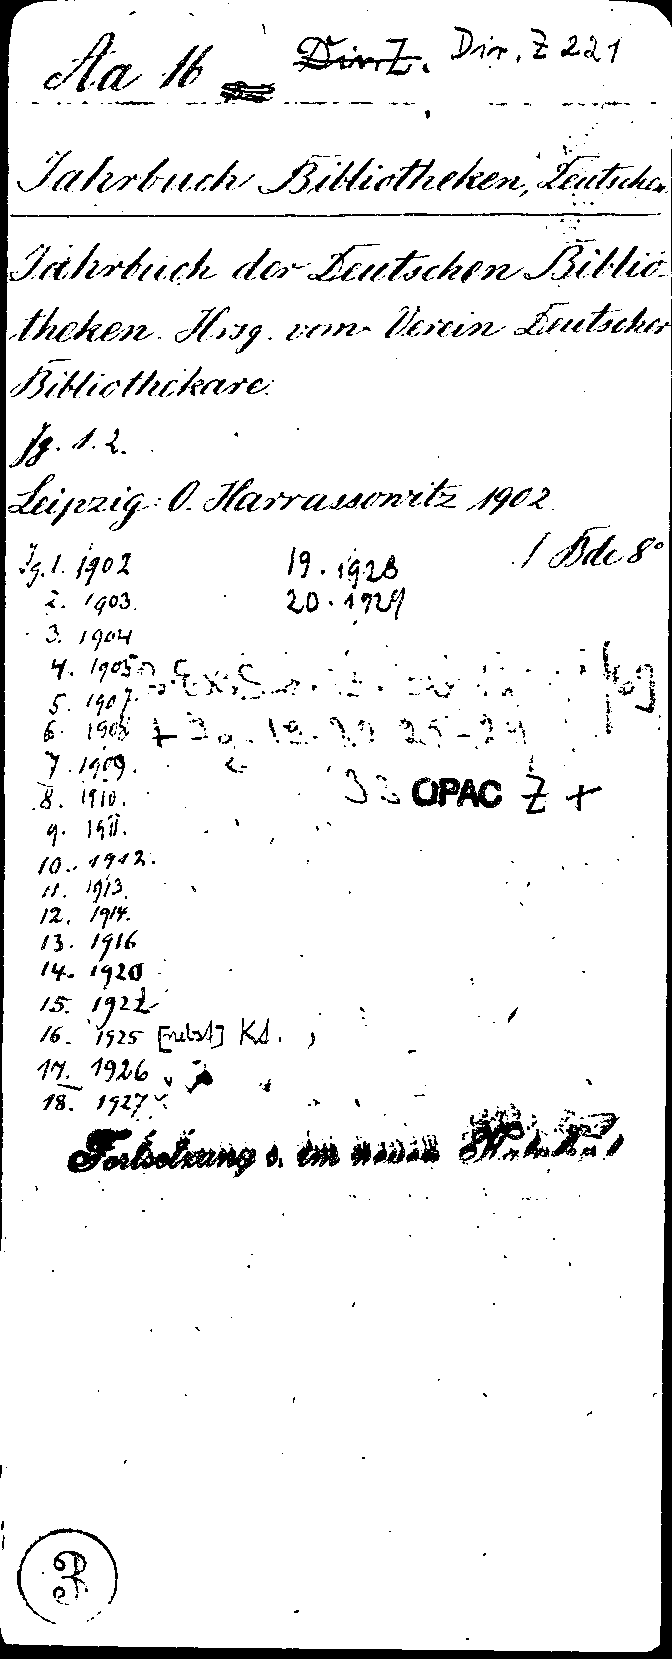 Aa 16 Dir. Z. Dir. Z 221
Jahrbuch Bibliotheken, Deutschen
Jahrbuch der Deutschen Biblio-
theken. Hrsg. vom Verein Deutscher
Bibliothekare.
Jg. 1. 2.
Leipzig: O. Harrassowitz 1902
1 Bde 8°
Jg. 1. 1902 19. 1928
2. 1903. 20. 1929
3. 1904
4. 1905
5. 1907.
6. 1908 + Jg. 19. 20 25-29
7. 1909.
8. 1910. OPAC Z +
9. 1911.
10. 1912.
11. 1913.
12. 1914.
13. 1916
14. 1920
15. 1922
16. 1925 [nebst] Kt.
17. 1926
18. 1927
Fortsetzung s. im neuen
3